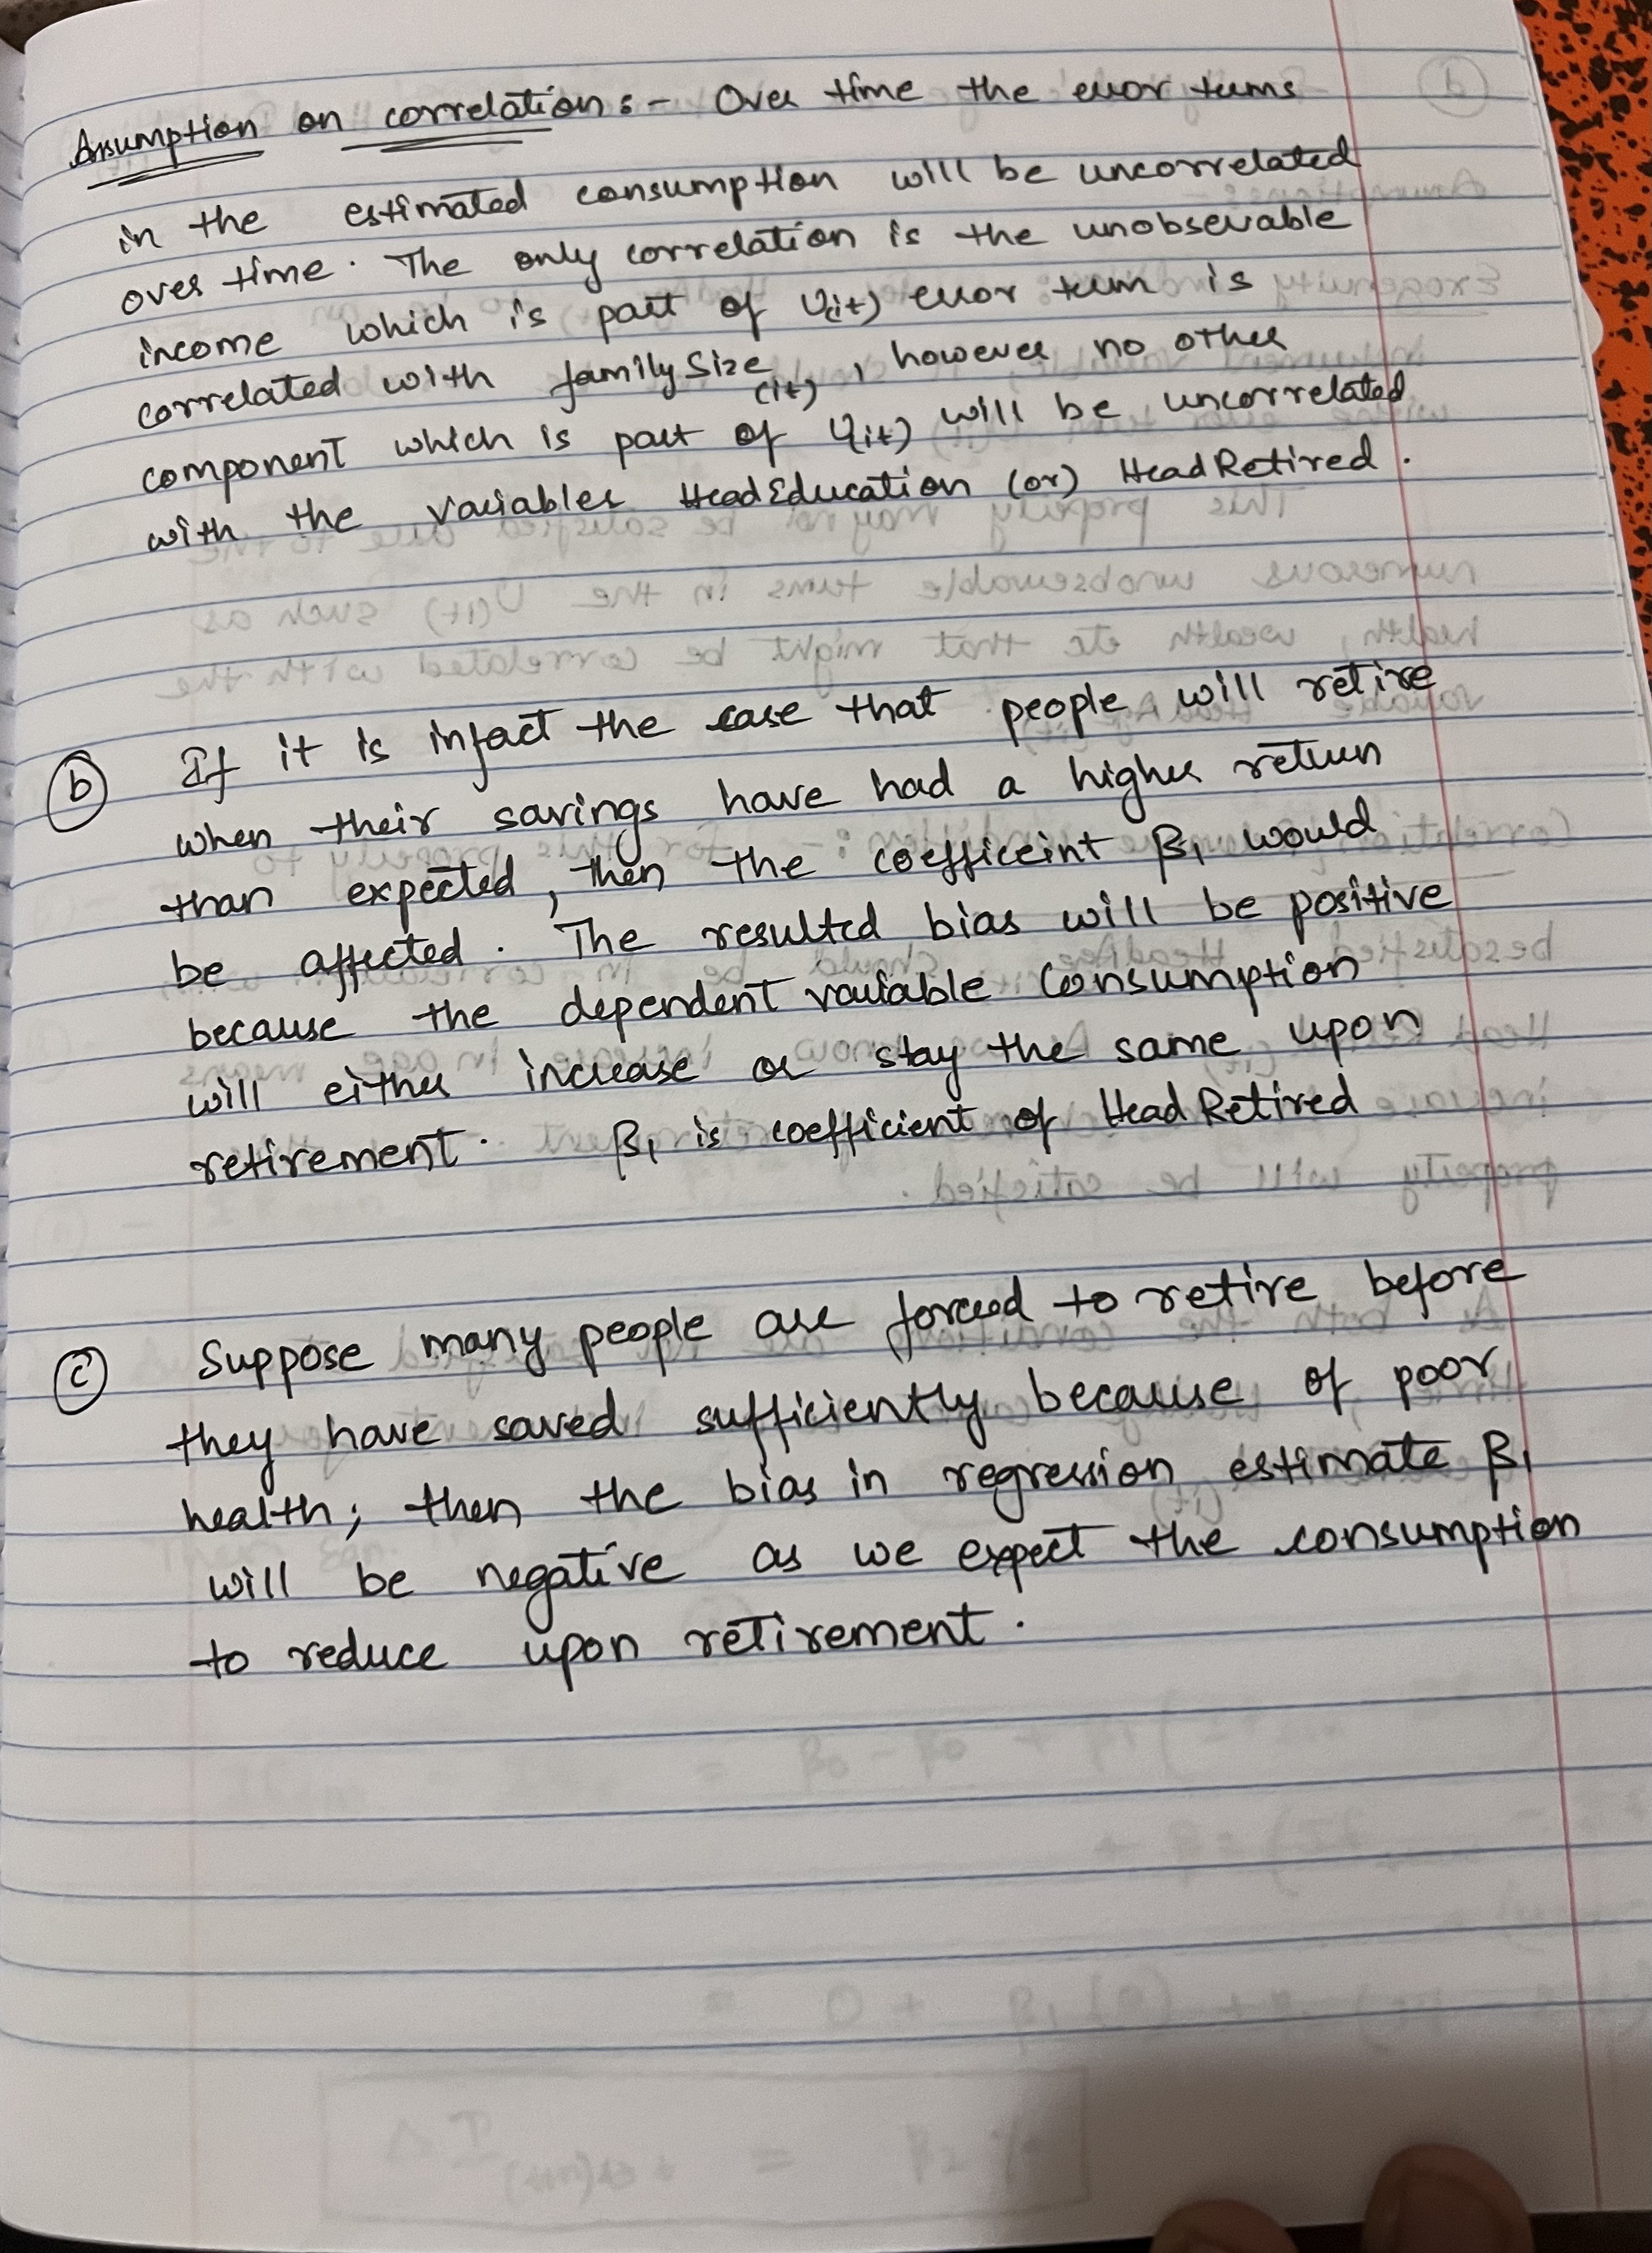 Assumption on correlation :- Over time the error terms
in the estimated consumption will be uncorrelated
over time. The only correlation is the unobservable
income which is part of U(it) error term is
correlated with familySize(it), however no other
component which is part of U(it) will be uncorrelated
with the variables HeadEducation (or) HeadRetired.
(b) If it is infact the case that people will retire
when their savings have had a higher return
than expected, then the coefficeint β1 would
be affected. The resulted bias will be positive
because the dependent variable Consumption
will either increase or stay the same upon
retirement. β1 is coefficient of HeadRetired
(c) Suppose many people are forced to retire before
they have saved sufficiently because of poor
health; then the bias in regression estimate β1
will be negative as we expect the consumption
to reduce upon retirement.